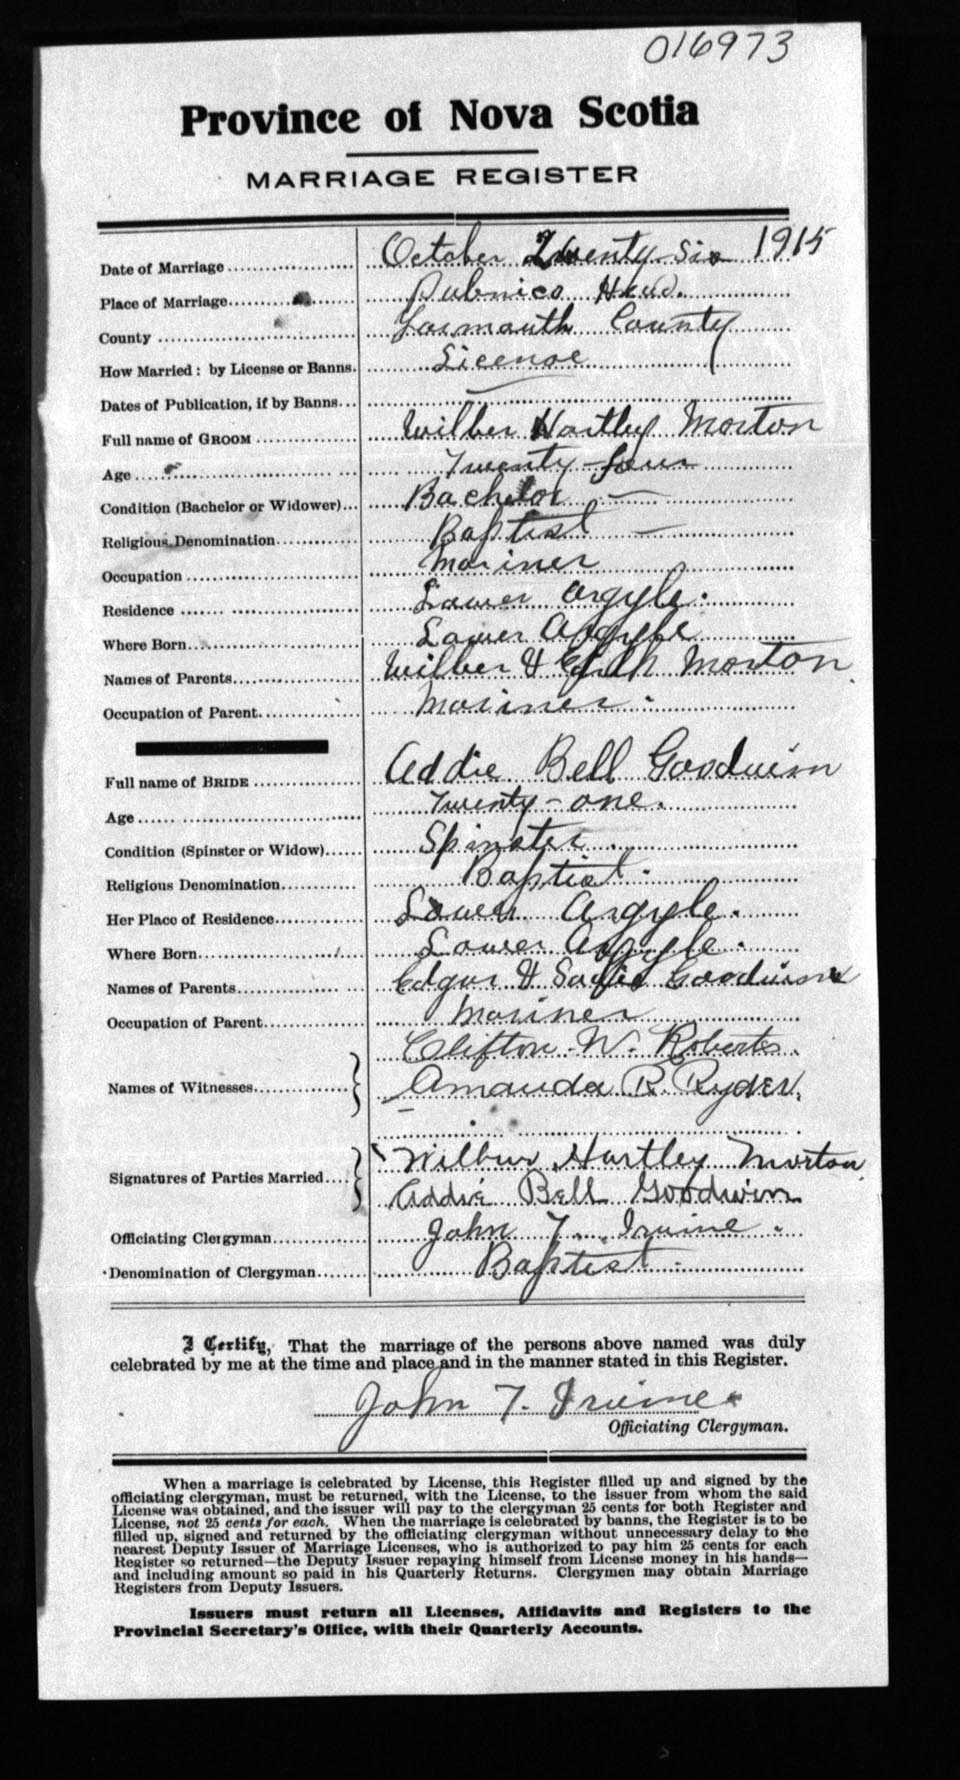 016973
Province of Nova Scotia
MARRIAGE REGISTER
Date of Marriage October Twenty Six 1915
Place of Marriage Pubnico Head.
County Yarmouth County
How Married: by License or Banns. License
Dates of Publication, if by Banns
Full name of GROOM Wilber Hartley Morton
Age Twenty-four
Condition (Bachelor or Widower) Bachelor
Religious Denomination Baptist
Occupation Mariner
Residence Lower Argyle.
Where Born Lower Argyle
Names of Parents Wilber & Edith Morton.
Occupation of Parent Mariner.
Full name of BRIDE Addie Bell Goodwin
Age Twenty-one.
Condition (Spinster or Widow) Spinster.
Religious Denomination Baptist.
Her Place of Residence Lower Argyle.
Where Born Lower Argyle.
Names of Parents Edgar & Sadie Goodwin
Occupation of Parent Mariner
Clifton W. Roberts.
Names of Witnesses Amanda R. Ryder.
Wilbur Hartley Morton
Signatures of Parties Married
Addie Bell Goodwin
Officiating Clergyman John T. Irvine.
Denomination of Clergyman Baptist.
I Certify, That the marriage of the persons above named was duly
celebrated by me at the time and place and in the manner stated in this Register.
John T. Irvine
Officiating Clergyman.
When a marriage is celebrated by License, this Register filled up and signed by the
officiating clergyman, must be returned, with the License, to the issuer from whom the said
License was obtained, and the issuer will pay to the clergyman 25 cents for both Register and
License, not 25 cents for each. When the marriage is celebrated by banns, the Register is to be
filled up, signed and returned by the officiating clergyman without unnecessary delay to the
nearest Deputy Issuer of Marriage Licenses, who is authorized to pay him 25 cents for each
Register so returned—the Deputy Issuer repaying himself from License money in his hands—
and including amount so paid in his Quarterly Returns. Clergymen may obtain Marriage
Registers from Deputy Issuers.
Issuers must return all Licenses, Affidavits and Registers to the
Provincial Secretary's Office, with their Quarterly Accounts.